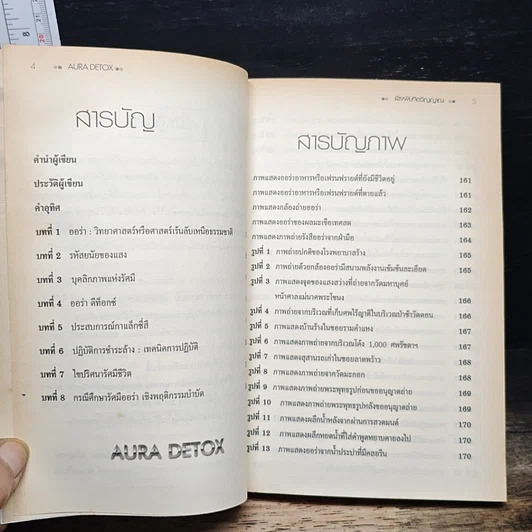 4 AURA DETOX
สารบัญ
คำนำผู้เขียน
ประวัติผู้เขียน
คำอุทิศ
บทที่ 1 ออร่า : วิทยาศาสตร์หรือศาสตร์เร้นลับเหนือธรรมชาติ
บทที่ 2 รหัสยนัยของแสง
บทที่ 3 บุคลิกภาพแห่งรัศมี
บทที่ 4 ออร่า ดีท็อกซ์
บทที่ 5 ประสบการณ์กาแล็กซี่สี
บทที่ 6 ปฏิบัติการชำระล้าง : เทคนิคการปฏิบัติ
บทที่ 7 ไขปริศนารัศมีชีวิต
บทที่ 8 กรณีศึกษารัศมีออร่า เชิงพฤติกรรมบำบัด
AURA DETOX
5
สารบัญภาพ
ภาพแสดงออร่าอาหารหรือเฟรนฟรายด์ที่ยังมีชีวิตอยู่ 161
ภาพแสดงออร่าอาหารหรือเฟรนฟรายด์ที่ตายแล้ว 161
ภาพแสดงกล้องถ่ายออร่า 162
ภาพแสดงออร่าของผลมะเขือเทศสด 163
ภาพแสดงภาพถ่ายรังสีออร่าจากฝ่ามือ 164
รูปที่ 1 ภาพถ่ายปกติของโรงพยาบาลร้าง 165
รูปที่ 2 ภาพถ่ายด้วยกล้องออร่ามีสนามพลังงานเข้มข้นละเอียด 165
รูปที่ 3 ภาพแสดงจุดของแสงสว่างที่ถ่ายจากวัดมหาบุศย์
หน้าศาลแม่นาคพระโขนง 166
รูปที่ 4 ภาพถ่ายจากบริเวณที่เก็บศพไร้ญาติในบริเวณป่าช้าวัดดอน 166
รูปที่ 5 ภาพแสดงบ้านร้างในซอยรามคำแหง 167
รูปที่ 6 ภาพแสดงภาพถ่ายจากบริเวณโค้ง 1,000 ศพรัชดาฯ 167
รูปที่ 7 ภาพแสดงสุสานรถเก่าในซอยลาดพร้าว 168
รูปที่ 8 ภาพแสดงภาพถ่ายจากวัดมะกอก 168
รูปที่ 9 ภาพแสดงภาพถ่ายพระพุทธรูปก่อนขออนุญาตถ่าย 169
รูปที่ 10 ภาพแสดงภาพถ่ายพระพุทธรูปหลังขออนุญาตถ่าย 169
รูปที่ 11 ภาพแสดงผลึกน้ำหลังจากผ่านการสวดมนต์ 170
รูปที่ 12 ภาพแสดงผลึกหยดน้ำที่ใส่คำพูดหยาบคายลงไป 170
รูปที่ 13 ภาพแสดงออร่าจากน้ำประปาที่มีคลอรีน 170